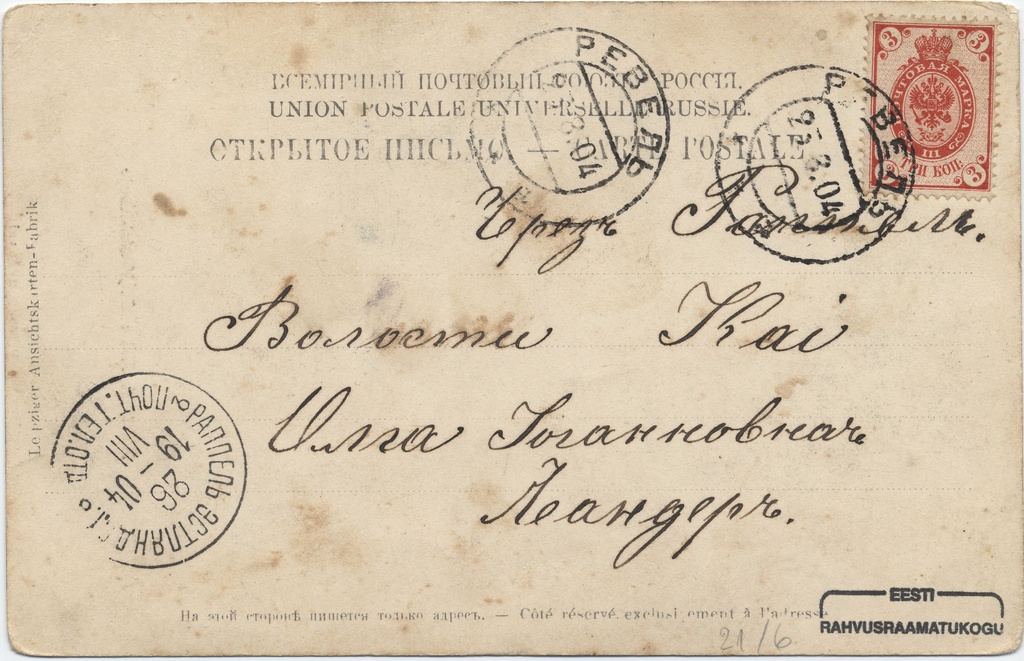 ВСЕМІРНЫЙ ПОЧТОВЫЙ СОЮЗЪ РОССІЯ.
UNION POSTALE UNIVERSELLE RUSSIE.
ОТКРЫТОЕ ПИСЬМО — CARTE POSTALE
РЕВЕЛЬ
8.04
РЕВЕЛЬ
25.8.04
ПОЧТОВАЯ МАРКА
III
ТРИ КОП.
3
3
3
3
Чрезъ Раппель.
Волости Каі
Олга Іоганновнач
Леандеръ.
РАППЕЛЬ ЭСТЛЯНД. Г.
ПОЧТ. ТЕЛ. ОТД.
26
VIII
19 04
Leipziger Ansichtskarten-Fabrik
На этой сторонѣ пишется только адресъ. — Côté réservé exclusivement à l'adresse
21/6
EESTI
RAHVUSRAAMATUKOGU